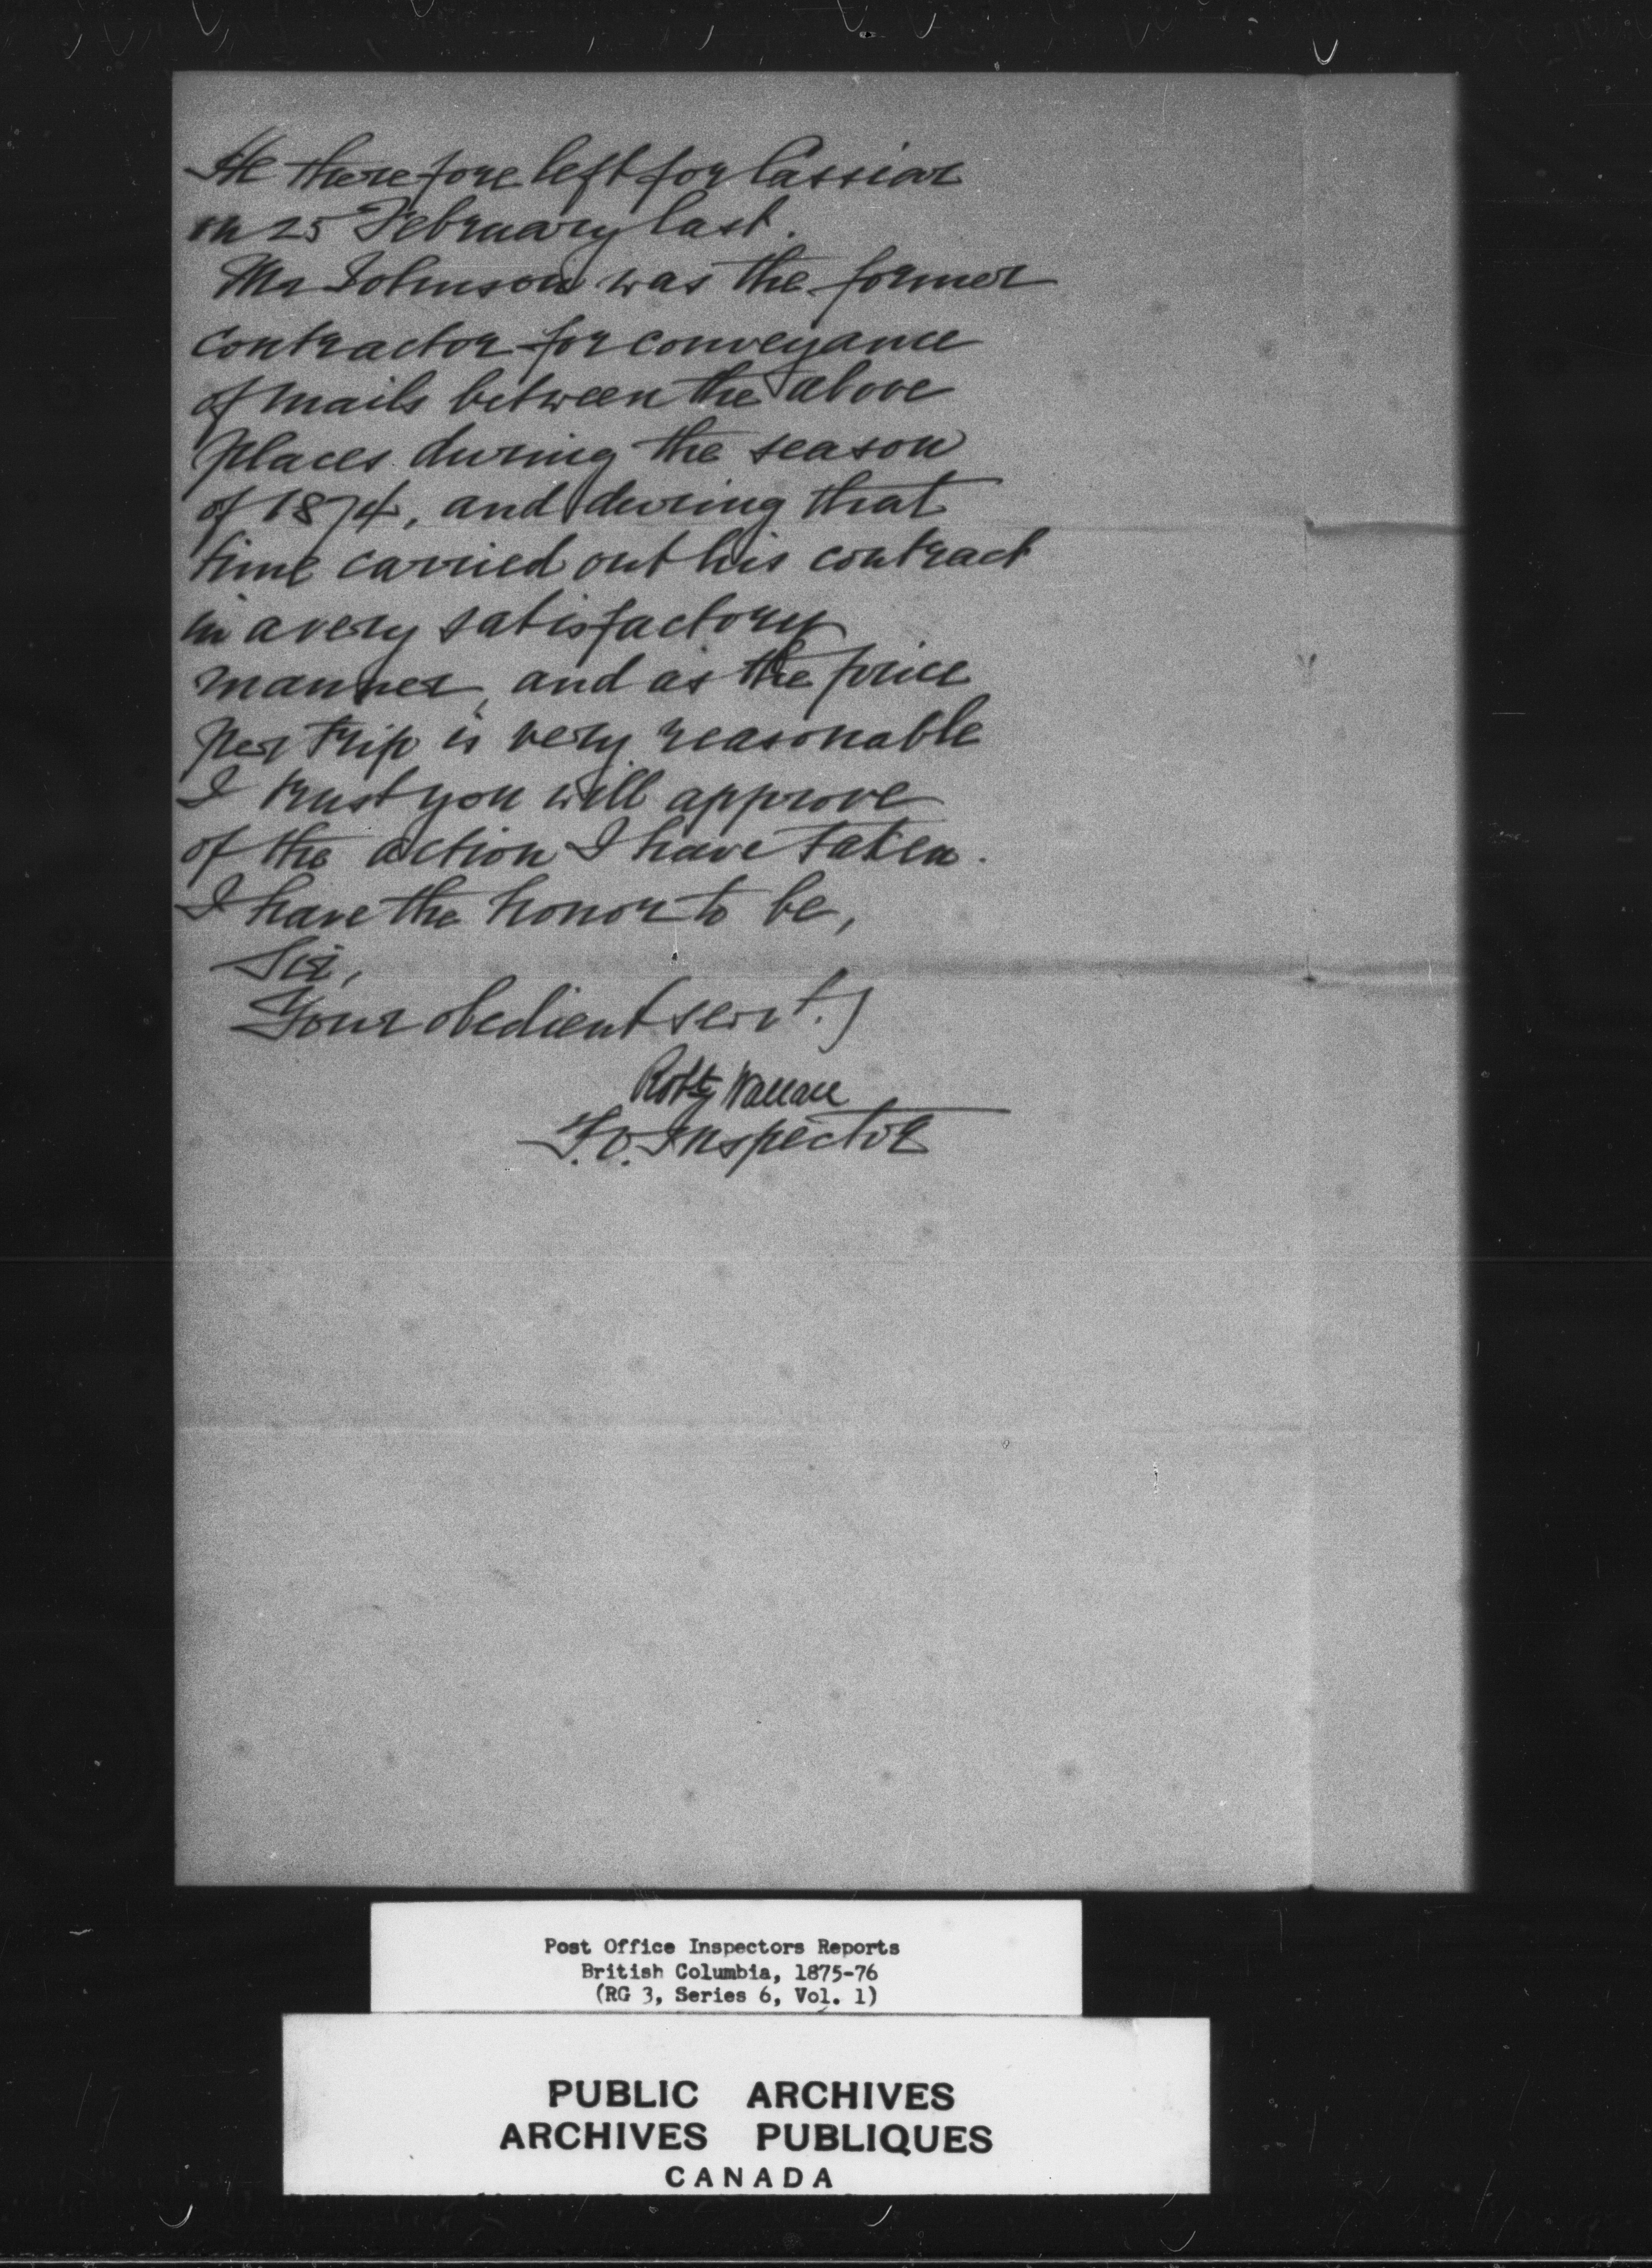 He therefore left for Cassiar
on 25 February last.
Mr Johnson was the former
contractor for conveyance
of mails between the above
places during the season
of 1874, and during that
time carried out his contract
in a very satisfactory
manner, and as the price
per trip is very reasonable
I trust you will approve
of the action I have taken.
I have the honor to be,
Sir,
Your obedient servt.
Robt Wallace
P.O. Inspector
Post Office Inspectors Reports
British Columbia, 1875-76
(RG 3, Series 6, Vol. 1)
PUBLIC ARCHIVES
ARCHIVES PUBLIQUES
CANADA